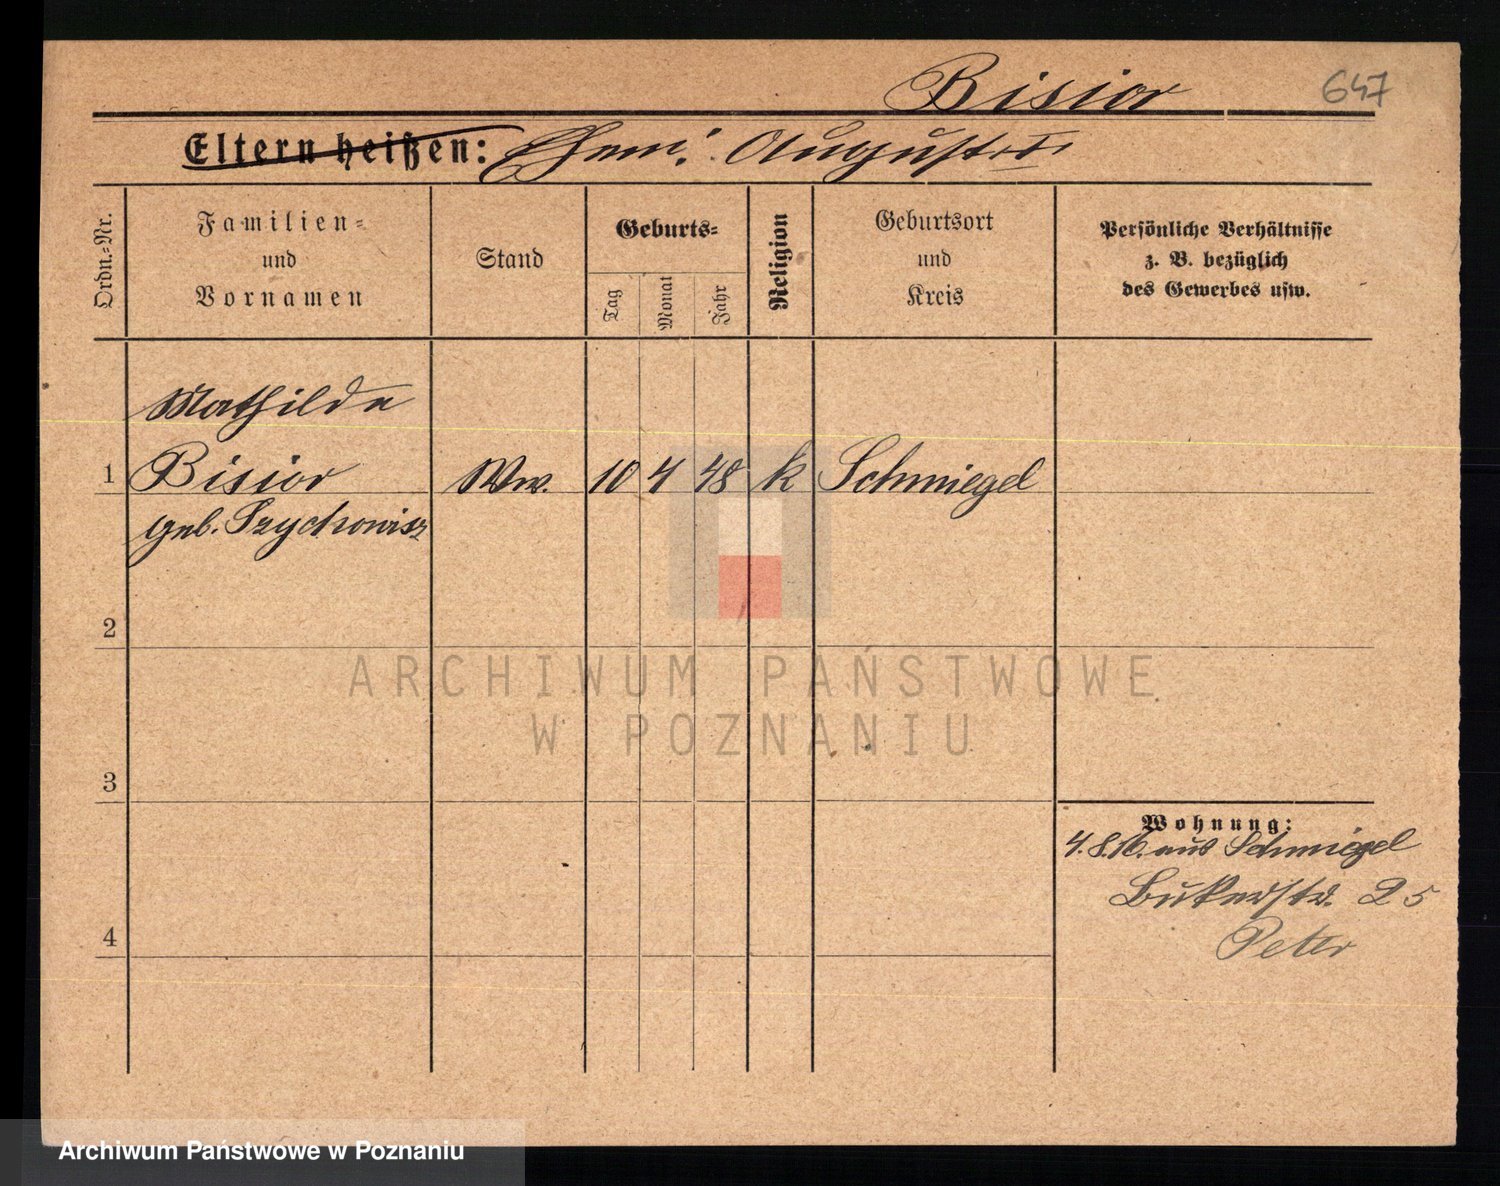 Bisior
647
Eltern heißen: Ehem. August †
Ordn.-Nr.
Familien-
und
Vornamen
Stand
Geburts-
Tag
Monat
Jahr
Religion
Geburtsort
und
Kreis
Persönliche Verhältnisse
z. B. bezüglich
des Gewerbes usw.
Mathilde
1 Bisior Ww. 10 4 48 k Schmiegel
geb.
2
3
4
Wohnung:
4.8.16. aus Schmiegel
Bukerstr. 25
Peter
ARCHIWUM PAŃSTWOWE
W POZNANIU
Archiwum Państwowe w Poznaniu